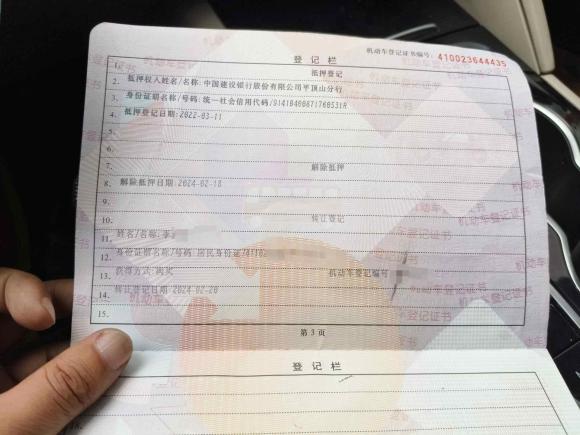 机动车登记证书编号：410023644435
登记栏
1. 抵押登记
2. 抵押权人姓名/名称:中国建设银行股份有限公司平顶山分行
3. 身份证明名称/号码:统一社会信用代码/91410400871760531R
4. 抵押登记日期:2022-03-11
5.
6.
7. 解除抵押
8. 解除抵押日期:2024-02-18
9.
10. 转让登记
11. 姓名/名称:李
12. 身份证明名称/号码:居民身份证/4102
13. 获得方式:购买 机动车登记编号
14. 转让登记日期:2024-02-20
15.
第 3 页
登记栏